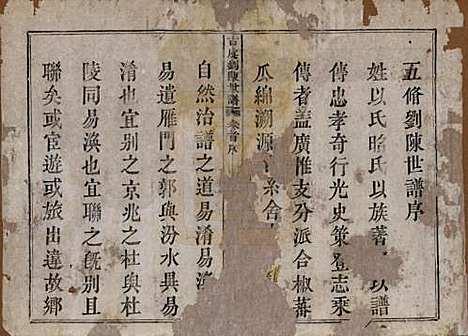 五脩劉陳世譜序
姓以氏昭氏以族著 以譜
傳忠孝奇行光史策登志乘
傳者蓋廣惟支分派合椒蕃
瓜綿溯源 糸合
吉 劉陳世譜 卷首序
自然治譜之道易淆易渙
易遺雁門之郭與汾水異易
淆也宜別之京兆之杜與杜
陵同易渙也宜聯之既別且
聯矣或宦遊或旅出違故鄉